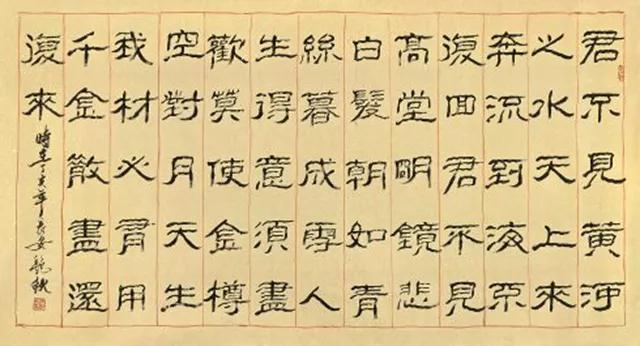 君不見黃河
之水天上來
奔流到海不
復回君不見
高堂明鏡悲
白髮朝如青
絲暮成雪人
生得意須盡
歡莫使金樽
空對月天生
我材必有用
千金散盡還
復來